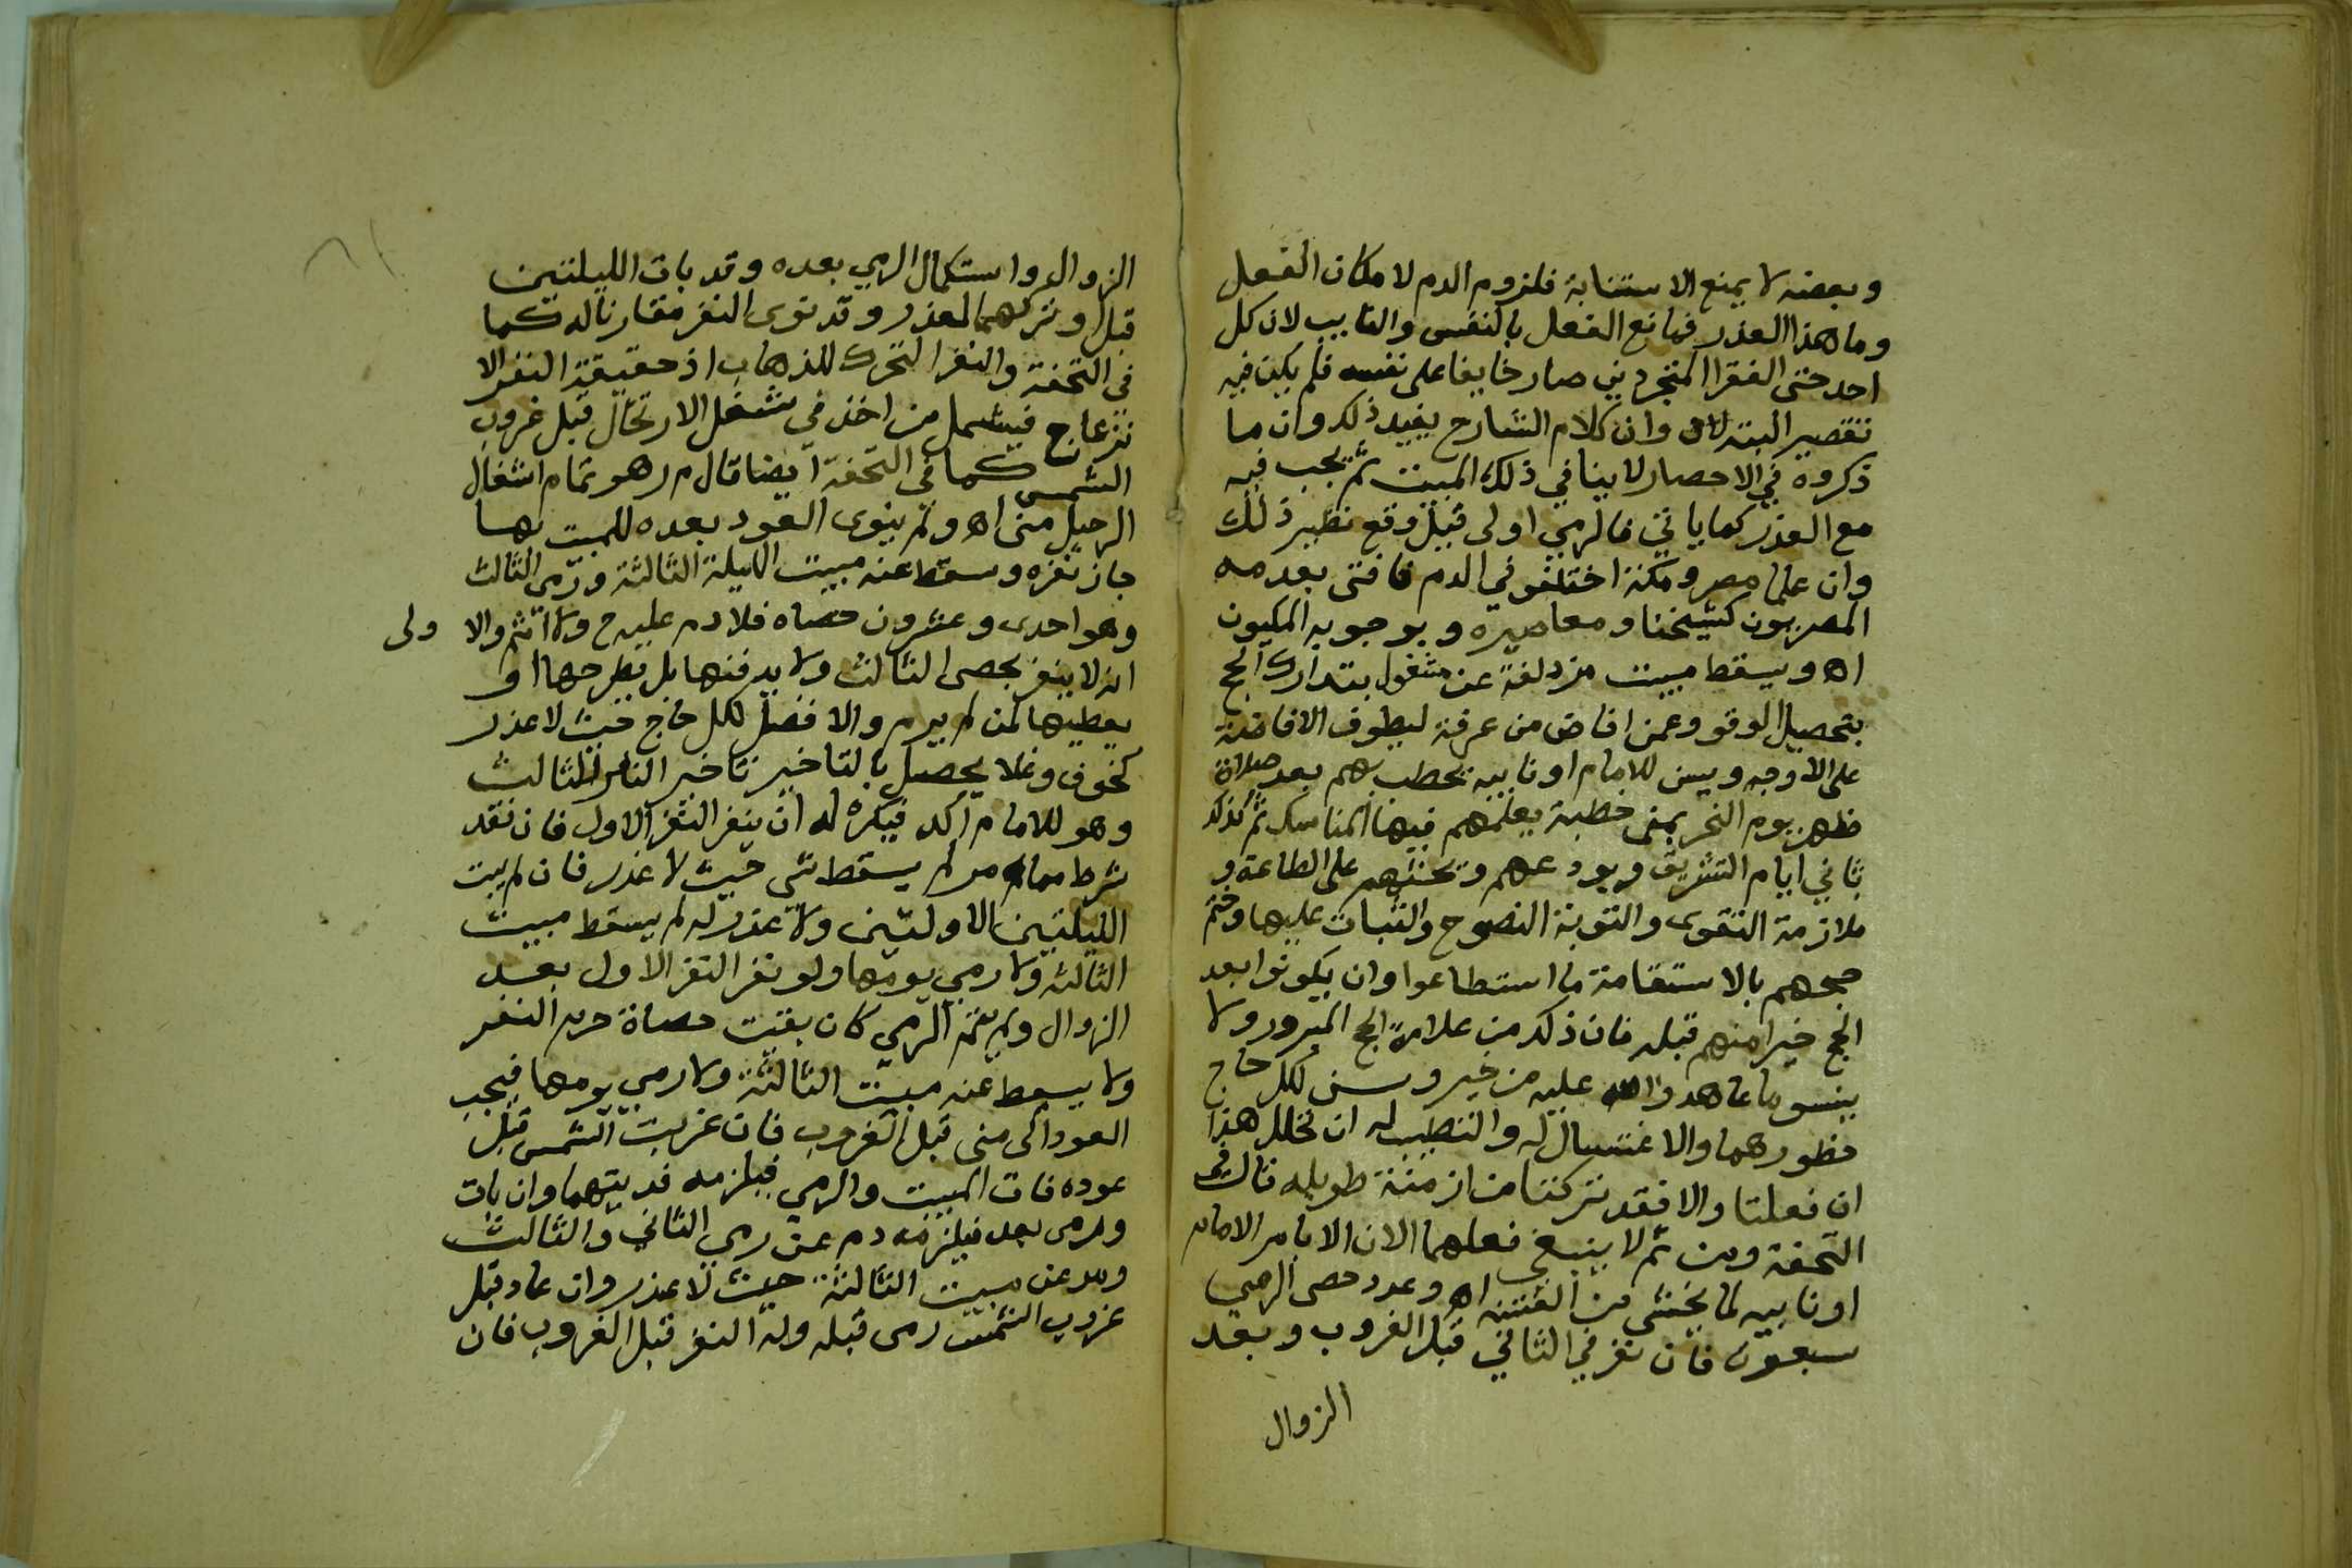 وبعضه لا يمنع الاستنابة فلزوم الدم لا مكان الفعل
وما هذا العذر فمانع الفعل بالنفس والنايب لان كل
احد حتى الفقرا المتجردين صار خايفا على نفسه فلم يكن فيه
تقصير البتة وان كلام الشارح يفيد ذلك وان ما
ذكروه في الاحصار لا ينافي ذلك المبيت ثم يجب فيه
مع العذر كما ياتي فالرمي اولى قيل وقع نظير ذلك
وان علما مصر ومكة اختلفو في الدم فافتى بعدمه
المصريون كشيخنا ومعاصيره وبوجوبه المكيون
اه ويسقط مبيت مزدلفة عن مشغول بتدارك الحج
بتحصيل الوقو وعمن افاض من عرفة ليطوف الافاضة
على الاوجه ويسن للامام او نايبه يخطب بهم بعد صلاة
ظهر يوم النحر بمنى خطبة يعلمهم فيها المناسك ثم كذلك
ثاني ايام التشريق ويودعهم ويحثهم على الطاعة و
ملازمة التقوى والتوبة النصوح والثبات عليها وختم
حجهم بالاستقامة ما استطاعوا وان يكونوا بعد
الحج خيرا منهم قبله فان ذلك من علامة الحج المبرور ولا
ينسو ما عاهدوا الله عليه من خير وسن لكل حاج
حظورهما والاغتسال له والتطيب له ان تحلل هذا
ان فعلتا والا فقد تركتا من ازمنة طويله قال في
التحفة ومن ثم لا ينبغي فعلهما الان الا بامر الامام
او نايبه لما يخشى من الفتنه اه وعدد حصى الرمي
سبعون فان نفر في الثاني قبل الغروب وبعد
الزوال
الزوال واستكمال الرمي بعده وقد بات الليلتين
قبل او تركهما لعذر وقد نوى النفر مقارنا له كما
في التحفة والنفر التحرك للذهاب اذ حقيقة النفر الا
نزعاج فيشمل من اخذ في شغل الارتحال قبل غروب
الشمس كما في التحفة ايضا قال م ر هو تمام اشغال
الرحيل منى اه ولم ينوى العود بعده للمبيت بها
جاز نفره وسقط عنه مبيت الليلة الثالثة ورمى الثالث
وهو احدى وعشرون حصاه فلا دم عليه ح ولا اثم والا ولى
انه لا ينفر بحصى الثالث ولا يدفنها بل يطرحها او
يعطيها لمن لم يرم والافضل لكل حاج حيث لا عذر
كخوف وغلا يحصل بالتاخير تاخير النفر الثالث
وهو للامام اكد فيكره له ان ينفر النفر الاول فان فقد
شرط مما مر لم يسقط شي حيث لا عذر فان لم يبت
الليلتين الاولتين ولا عذر له لم يسقط مبيت
الثالثه ولا رمي يومها ولو نفر النفر الاول بعد
الزوال ولم يتم الرمي كان بقيت حصاة حرم النفر
ولا يسقط عنه مبيت الثالثة ولا رمي يومها فيجب
العود الى منى قبل الغروب فان غربت الشمس قبل
عوده فات المبيت والرمي فيلزمه فديتهما وان بات
ورمى بعد فيلزمه دم عن رمي الثاني والثالث
ومد عن مبيت الثالثة حيث لا عذر وان عاد قبل
غروب الشمس رمى قبله وله النفر قبل الغروب فان